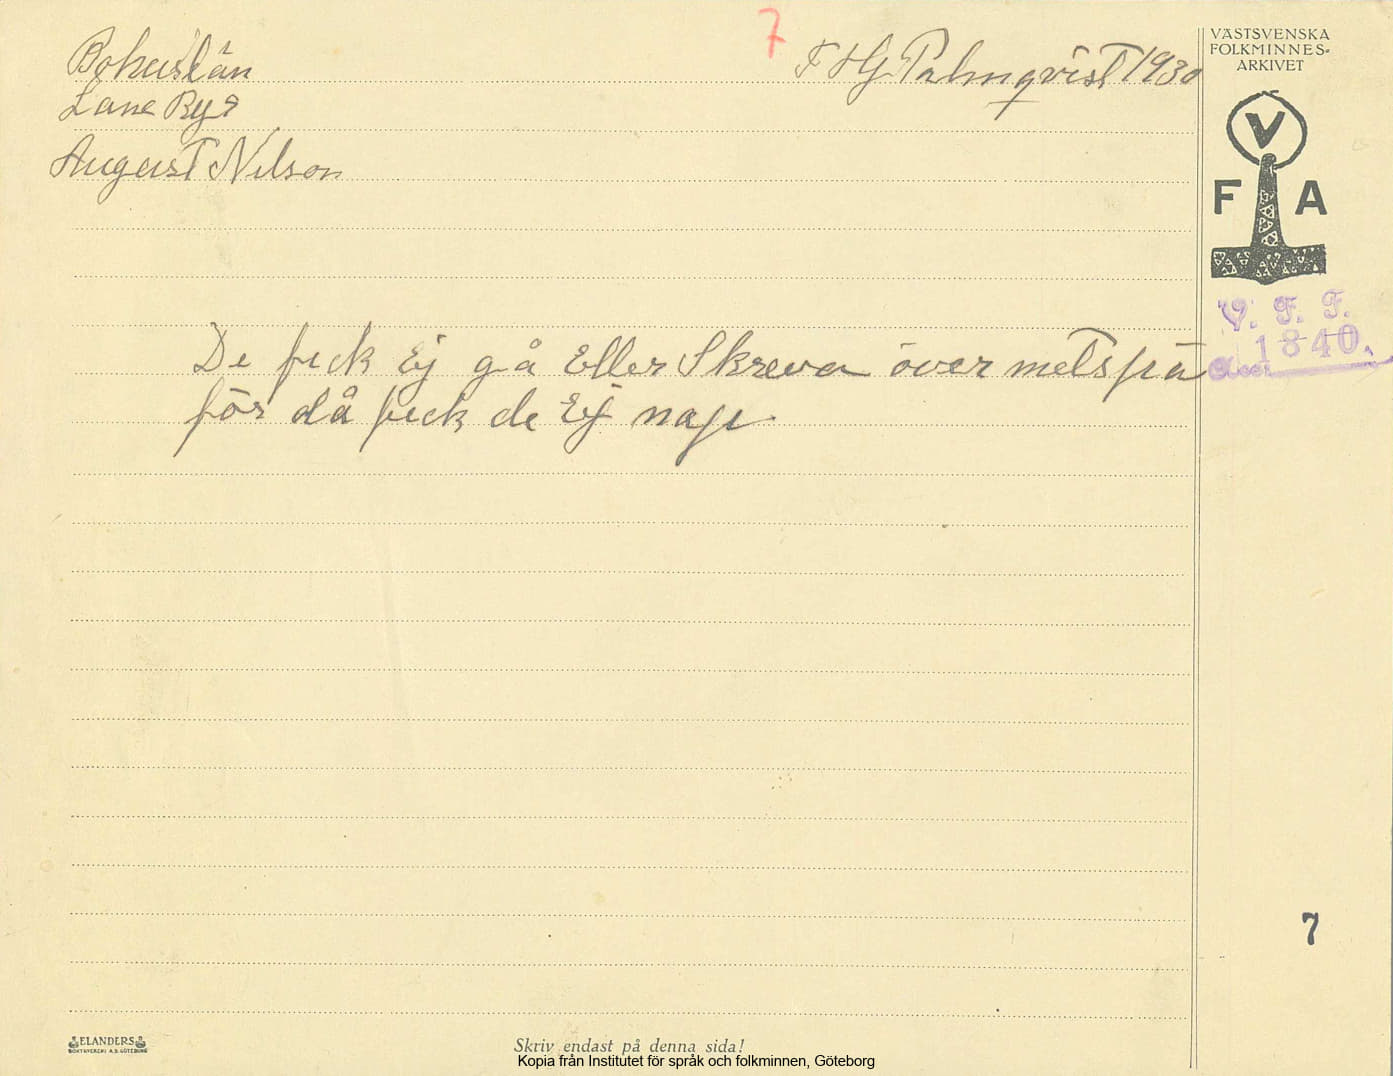 7
Bohuslän
F HG Palmqvist 1930
Lane Ryr
August Nilson
VÄSTSVENSKA
FOLKMINNES-
ARKIVET
V
F A
V. F. F.
Acc. 1840.
De fick Ej gå Eller Skreva över metspä
för då fick de Ej napp
7
ELANDERS
BOKTRYCKERI A.B. GÖTEBORG
Skriv endast på denna sida!
Kopia från Institutet för språk och folkminnen, Göteborg